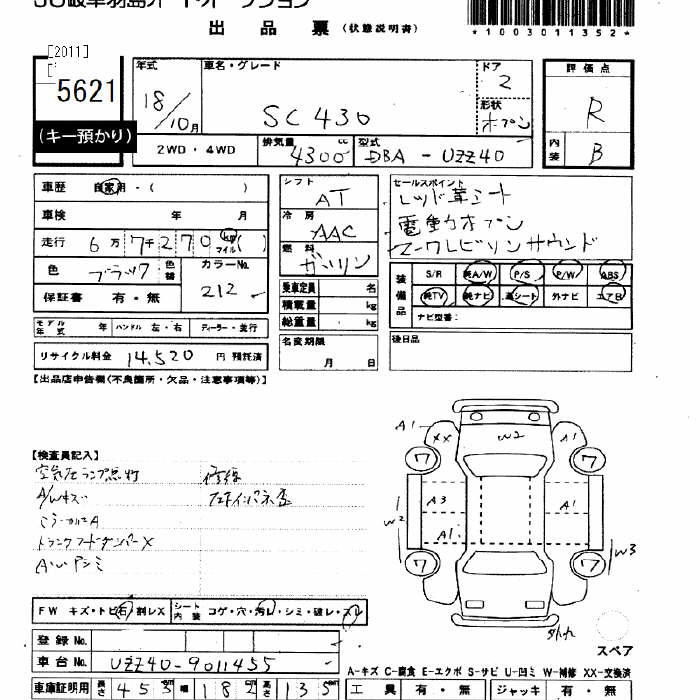 JU岐阜羽島オートオークション
出 品 票 (状態説明書)
*1003011352*
[2011]
5621
(キー預かり)
年式 18/10月
車名・グレード SC430
ドア 2
形状 オープン
評価点 R
内装 B
2WD・4WD
排気量 4300 cc
型式 DBA-UZZ40
車歴 自家用・( )
車検 年 月
走行 6万7千270 km マイル ( )
色 ブラック 色替 カラーNo. 212
保証書 有・無
シフト AT
冷房 AAC
燃料 ガソリン
乗車定員 名
積載量 kg
総重量 kg
セールスポイント
レッド革シート
電動オープン
マークレビンソンサウンド
装備品 S/R 純A/W P/S P/W ABS
純TV 純ナビ 革シート 外ナビ エアB
ナビ型番:
モデル年式 年 ハンドル 左・右 ディーラー・並行
名変期限 月 日
後日品
リサイクル料金 14,520 円 預託済
【出品店申告欄(不良箇所・欠品・注意事項等)】
【検査員記入】
空気圧ランプ点灯 修復
A/Wキズ
トランクフードダンパーX
A1 XX W2 A1
ワ ワ
A3 A1
W2 A1 W3
ワ ワ
スペア
FW キズ・トビ石・割レX シート内装 コゲ・穴・汚レ・シミ・破レ・スレ
登録No.
車台No. UZZ40-9011455
A-キズ C-腐食 E-エクボ S-サビ U-凹ミ W-補修 XX-交換済
車庫証明用 長さ 453 幅 182 高さ 135
工具 有・無 ジャッキ 有・無